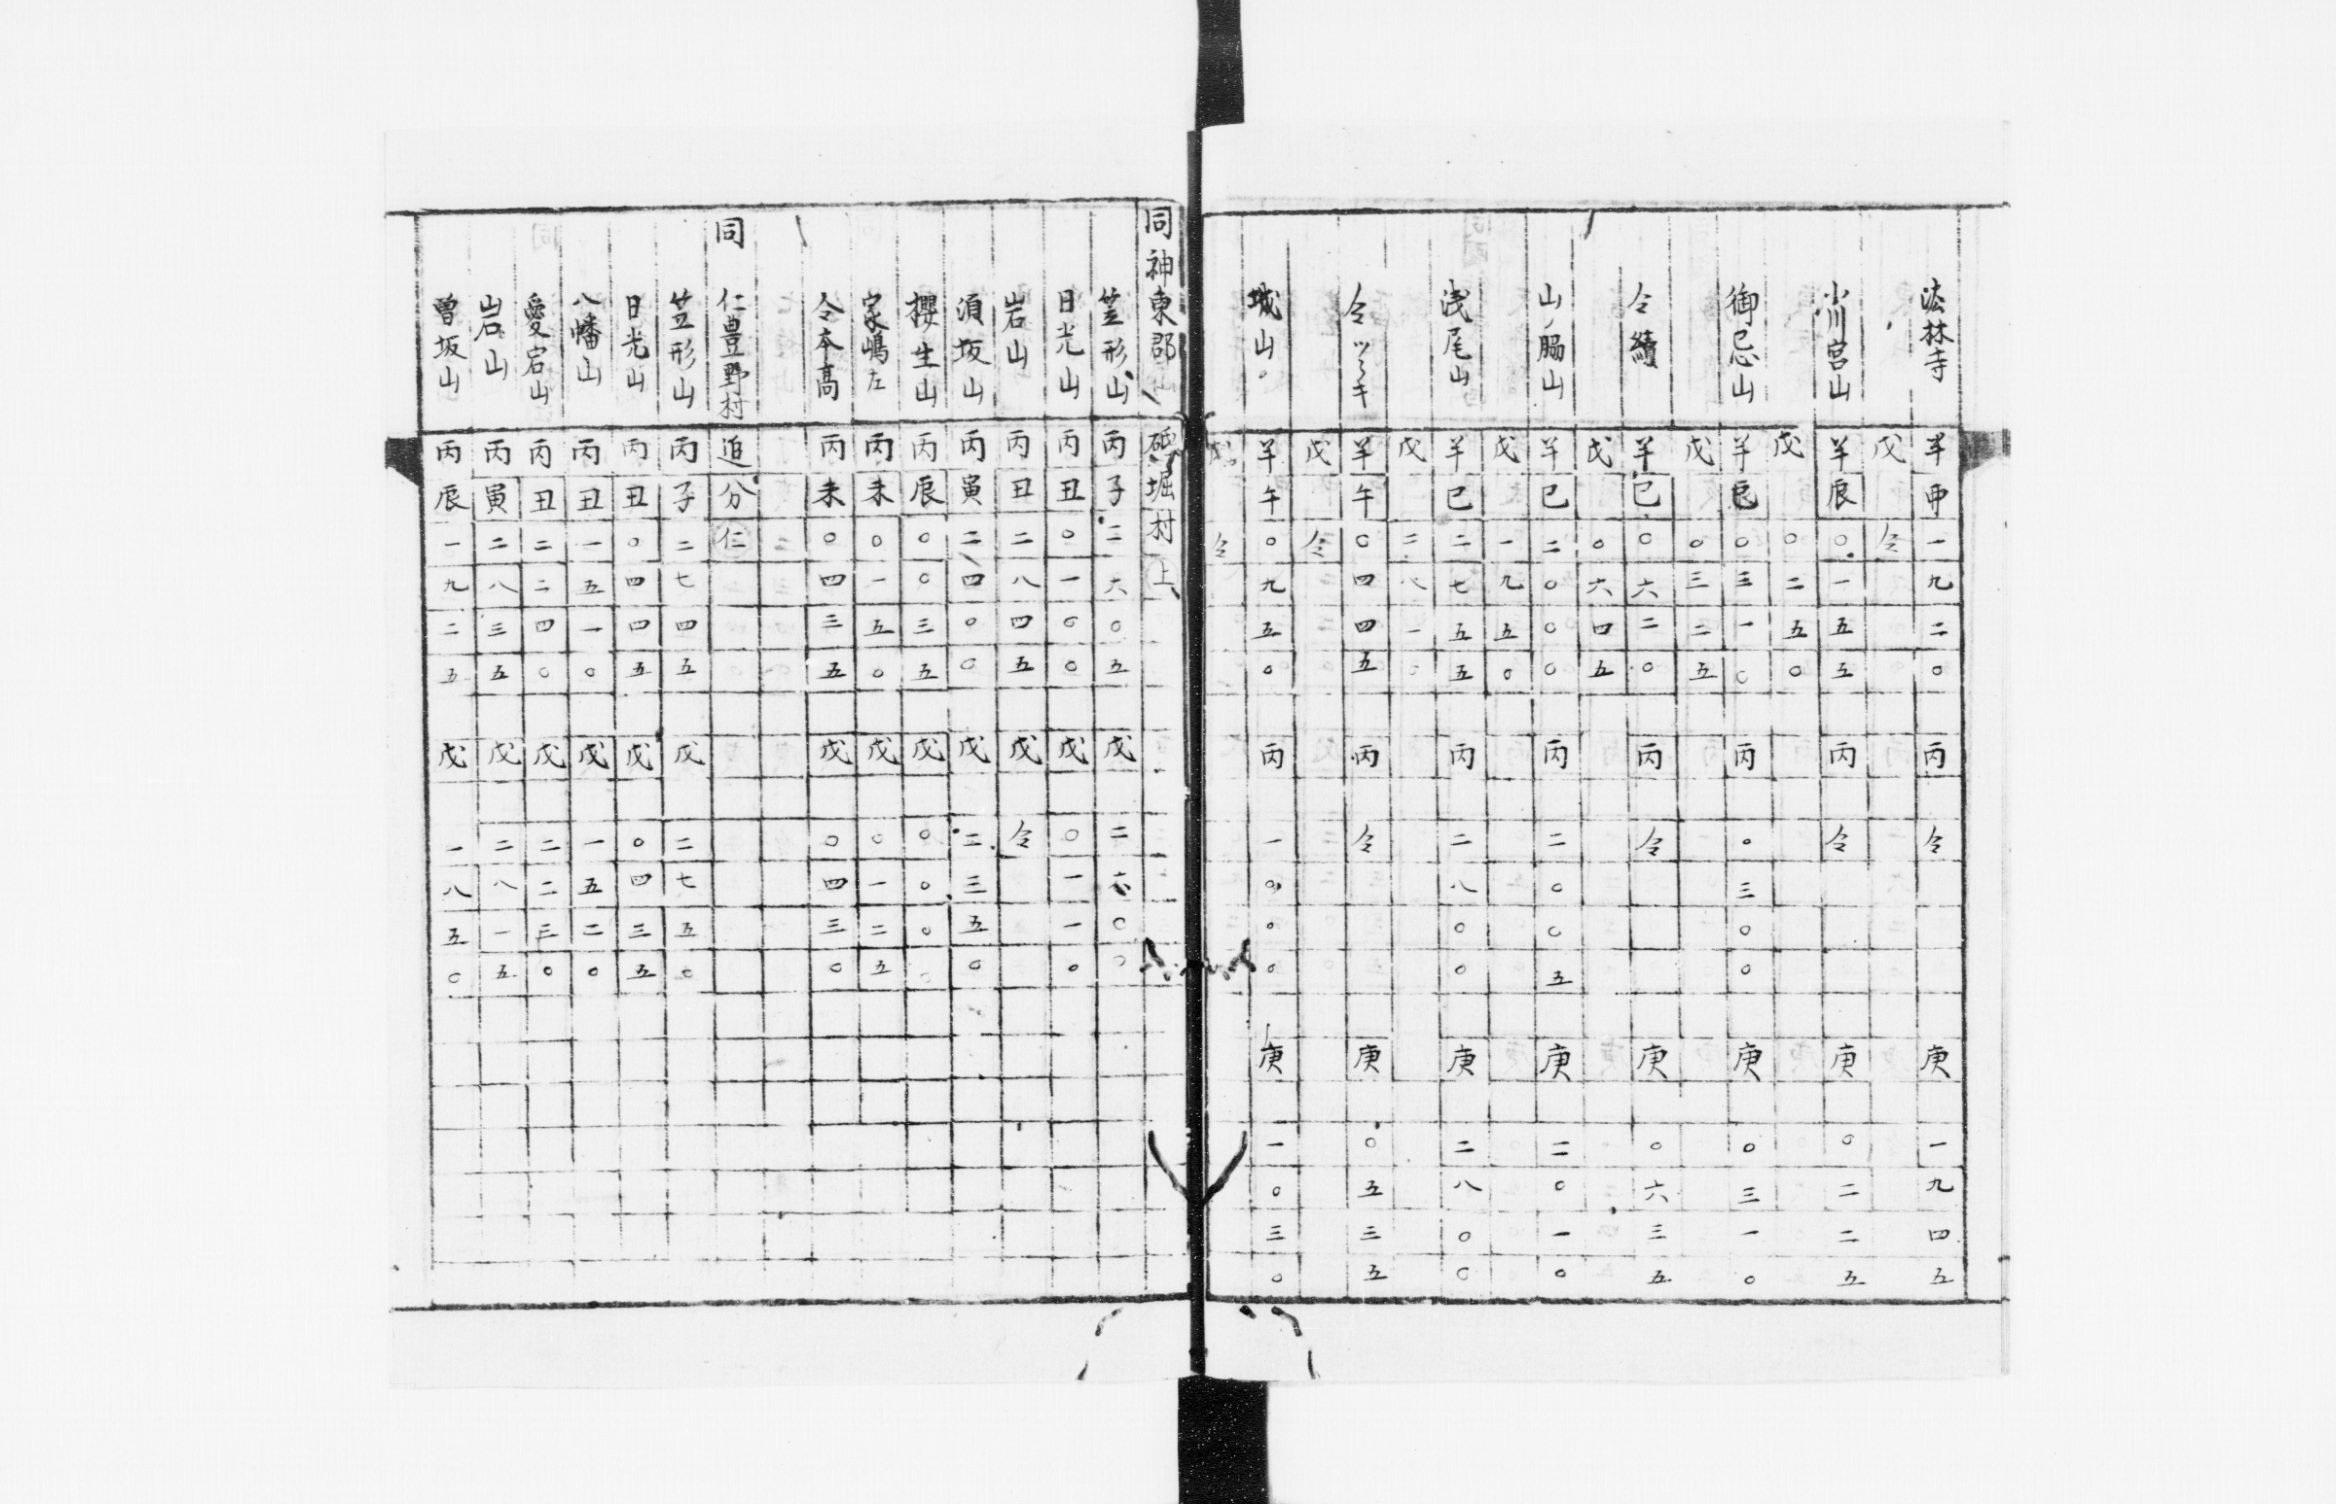 法林寺 半申一九二〇 丙 令 庚 一九四五
戊 令
小川宮山 半辰〇一五五 丙 令 庚 〇二二五
戊 〇二五〇
御忌山 半辰〇三一〇 丙 〇三〇〇 庚 〇三一〇
戊 〇三二五
令續 半巳〇六二〇 丙 令 庚 〇六三五
戊 〇六四五
山ノ脇山 半巳二〇〇〇 丙 二〇〇五 庚 二〇一〇
戊 一九五〇
浅尾山 半巳二七五五 丙 二八〇〇 庚 二八〇〇
戊 二八一〇
令ツヽキ 半午〇四四五 丙 令 庚 〇五三五
戊 令
城山 半午〇九五〇 丙 一〇〇〇 庚 一〇三〇
戊 令
同神東郡 砥堀村 上
笠形山 丙子二六〇五 戊 二六〇〇
日光山 丙丑〇一〇〇 戊 〇一一〇
岩山 丙丑二八四五 戊 令
須坂山 丙寅二四〇〇 戊 二三五〇
櫻生山 丙辰〇〇三五 戊 〇〇〇〇
家嶋左 丙未〇一五〇 戊 〇一二五
令本高 丙未〇四三五 戊 〇四三〇
同 仁豊野村 追分 仁
笠形山 丙子二七四五 戊 二七五〇
日光山 丙丑〇四四五 戊 〇四三五
八幡山 丙丑一五一〇 戊 一五二〇
愛宕山 丙丑二二四〇 戊 二二三〇
岩山 丙寅二八三五 戊 二八一五
曽坂山 丙辰一九二五 戊 一八五〇